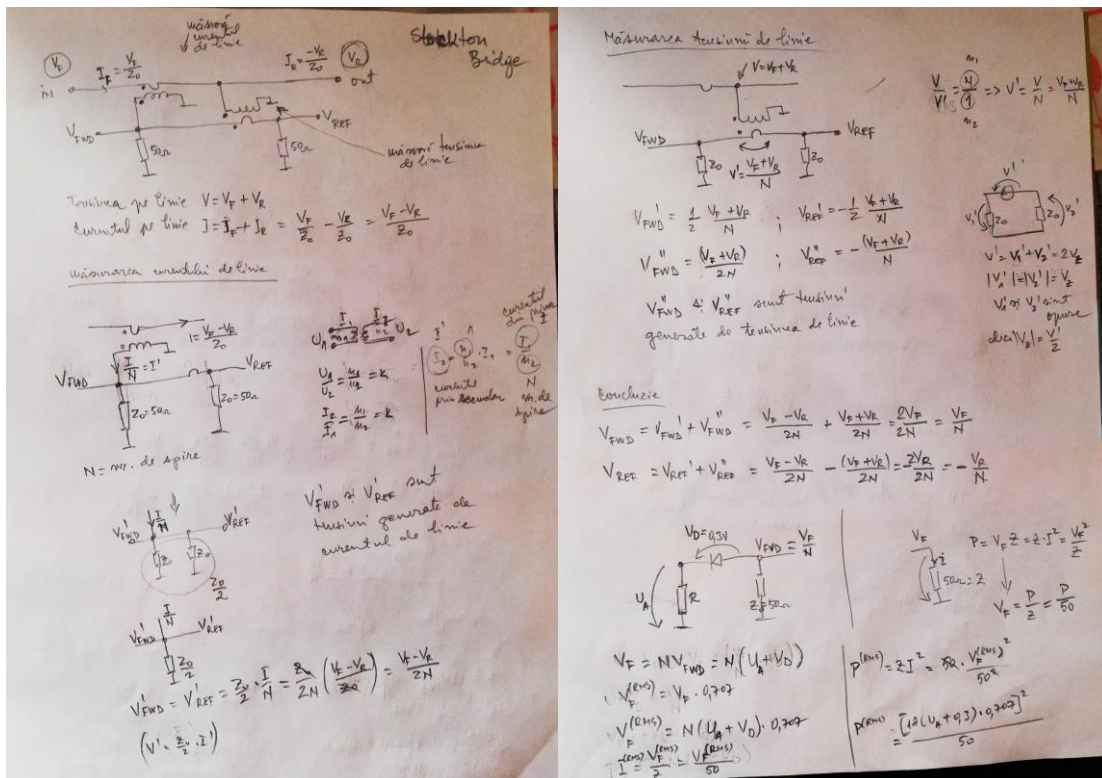 măsoră
curentul
de linie
Stockton
Bridge
V_F
I_F = V_F/Z_0
I_R = -V_R/Z_0
V_R
in
out
V_FWD
V_REF
50Ω
50Ω
măsoră tensiunea
de linie
Tensiunea pe linie V = V_F + V_R
Curentul pe linie I = I_F + I_R = V_F/Z_0 - V_R/Z_0 = (V_F - V_R)/Z_0
măsurarea curentului de linie
I = (V_F - V_R)/Z_0
I/N = I'
V_FWD
V_REF
Z_0 = 50Ω
Z_0 = 50Ω
N = nr. de spire
U_1
U_2
U_1/U_2 = n_1/n_2 = k
I_2/I_1 = n_1/n_2 = k
curentul
din primar
I'
I_2 = n_1/n_2 · I_1 = I/n_2
curentul
prin secundar
N
nr. de
spire
I/N
V'_FWD
V'_REF
Z_0
Z_0
Z_0/2
V'_FWD și V'_REF sunt
tensiuni generate de
curentul de linie
I/N
V'_FWD
V'_REF
Z_0/2
V'_FWD = V'_REF = Z_0/2 · I/N = Z_0/2N ((V_F - V_R)/Z_0) = (V_F - V_R)/2N
(V' = Z_0/2 · I')
Măsurarea tensiunii de linie
V = V_F + V_R
V/V' = N/1 => V' = V/N = (V_F + V_R)/N
n_1
n_2
V_FWD
V_REF
Z_0
Z_0
V' = (V_F + V_R)/N
V'
V_1'
Z_0
Z_0
V_2'
V_FWD' = 1/2 (V_F + V_R)/N ; V_REF' = -1/2 (V_F + V_R)/N
V''_FWD = (V_F + V_R)/2N ; V''_REF = -(V_F + V_R)/N
V''_FWD și V''_REF sunt tensiuni
generate de tensiunea de linie
V' = V_1' + V_2' = 2V_2
|V_1'| = |V_2'| = V_2
V_1' și V_2' sunt
opuse
deci |V_2| = V'/2
Concluzie
V_FWD = V_FWD' + V''_FWD = (V_F - V_R)/2N + (V_F + V_R)/2N = 2V_F/2N = V_F/N
V_REF = V_REF' + V''_REF = (V_F - V_R)/2N - (V_F + V_R)/2N = 2V_R/2N = -V_R/N
V_D = 0,3V
V_FWD = V_F/N
U_A
R
Z_0 = 50Ω
V_F
i
50Ω = Z
P = V_F Z = Z·I² = V_F²/Z
V_F = P/Z = P/50
V_F = N V_FWD = N (U_A + V_D)
V_F^(RMS) = V_F · 0,707
V_F^(RMS) = N (U_A + V_D) · 0,707
I^(RMS) = V_F^(RMS)/Z = V_F^(RMS)/50
P^(RMS) = Z I² = 50 · V_F^(RMS)²/50²
P^(RMS) = [18 (U_A + 0,3) · 0,707]²/50